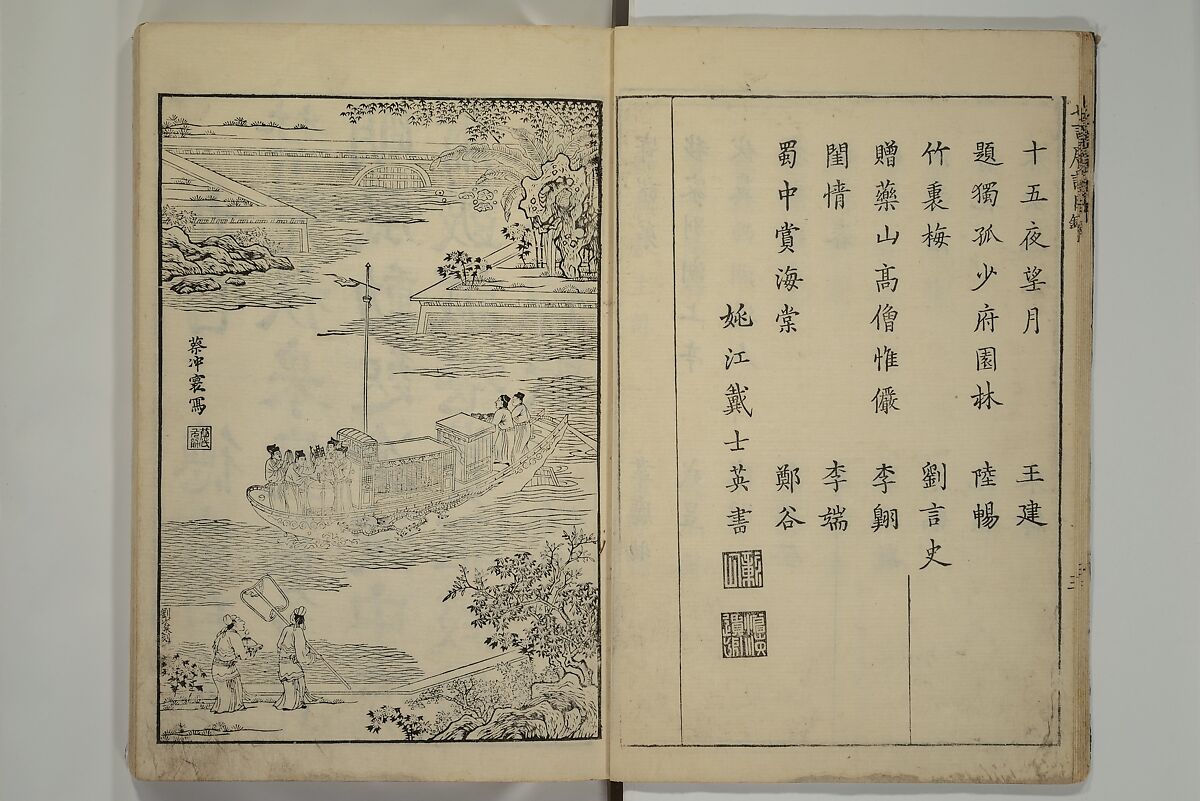 十五夜望月　王建
題獨孤少府園林　陸暢
竹裏梅　劉言史
贈藥山高僧惟儼　李翺
閨情　李端
蜀中賞海棠　鄭谷
姚江戴士英書
三
蔡冲寰寫